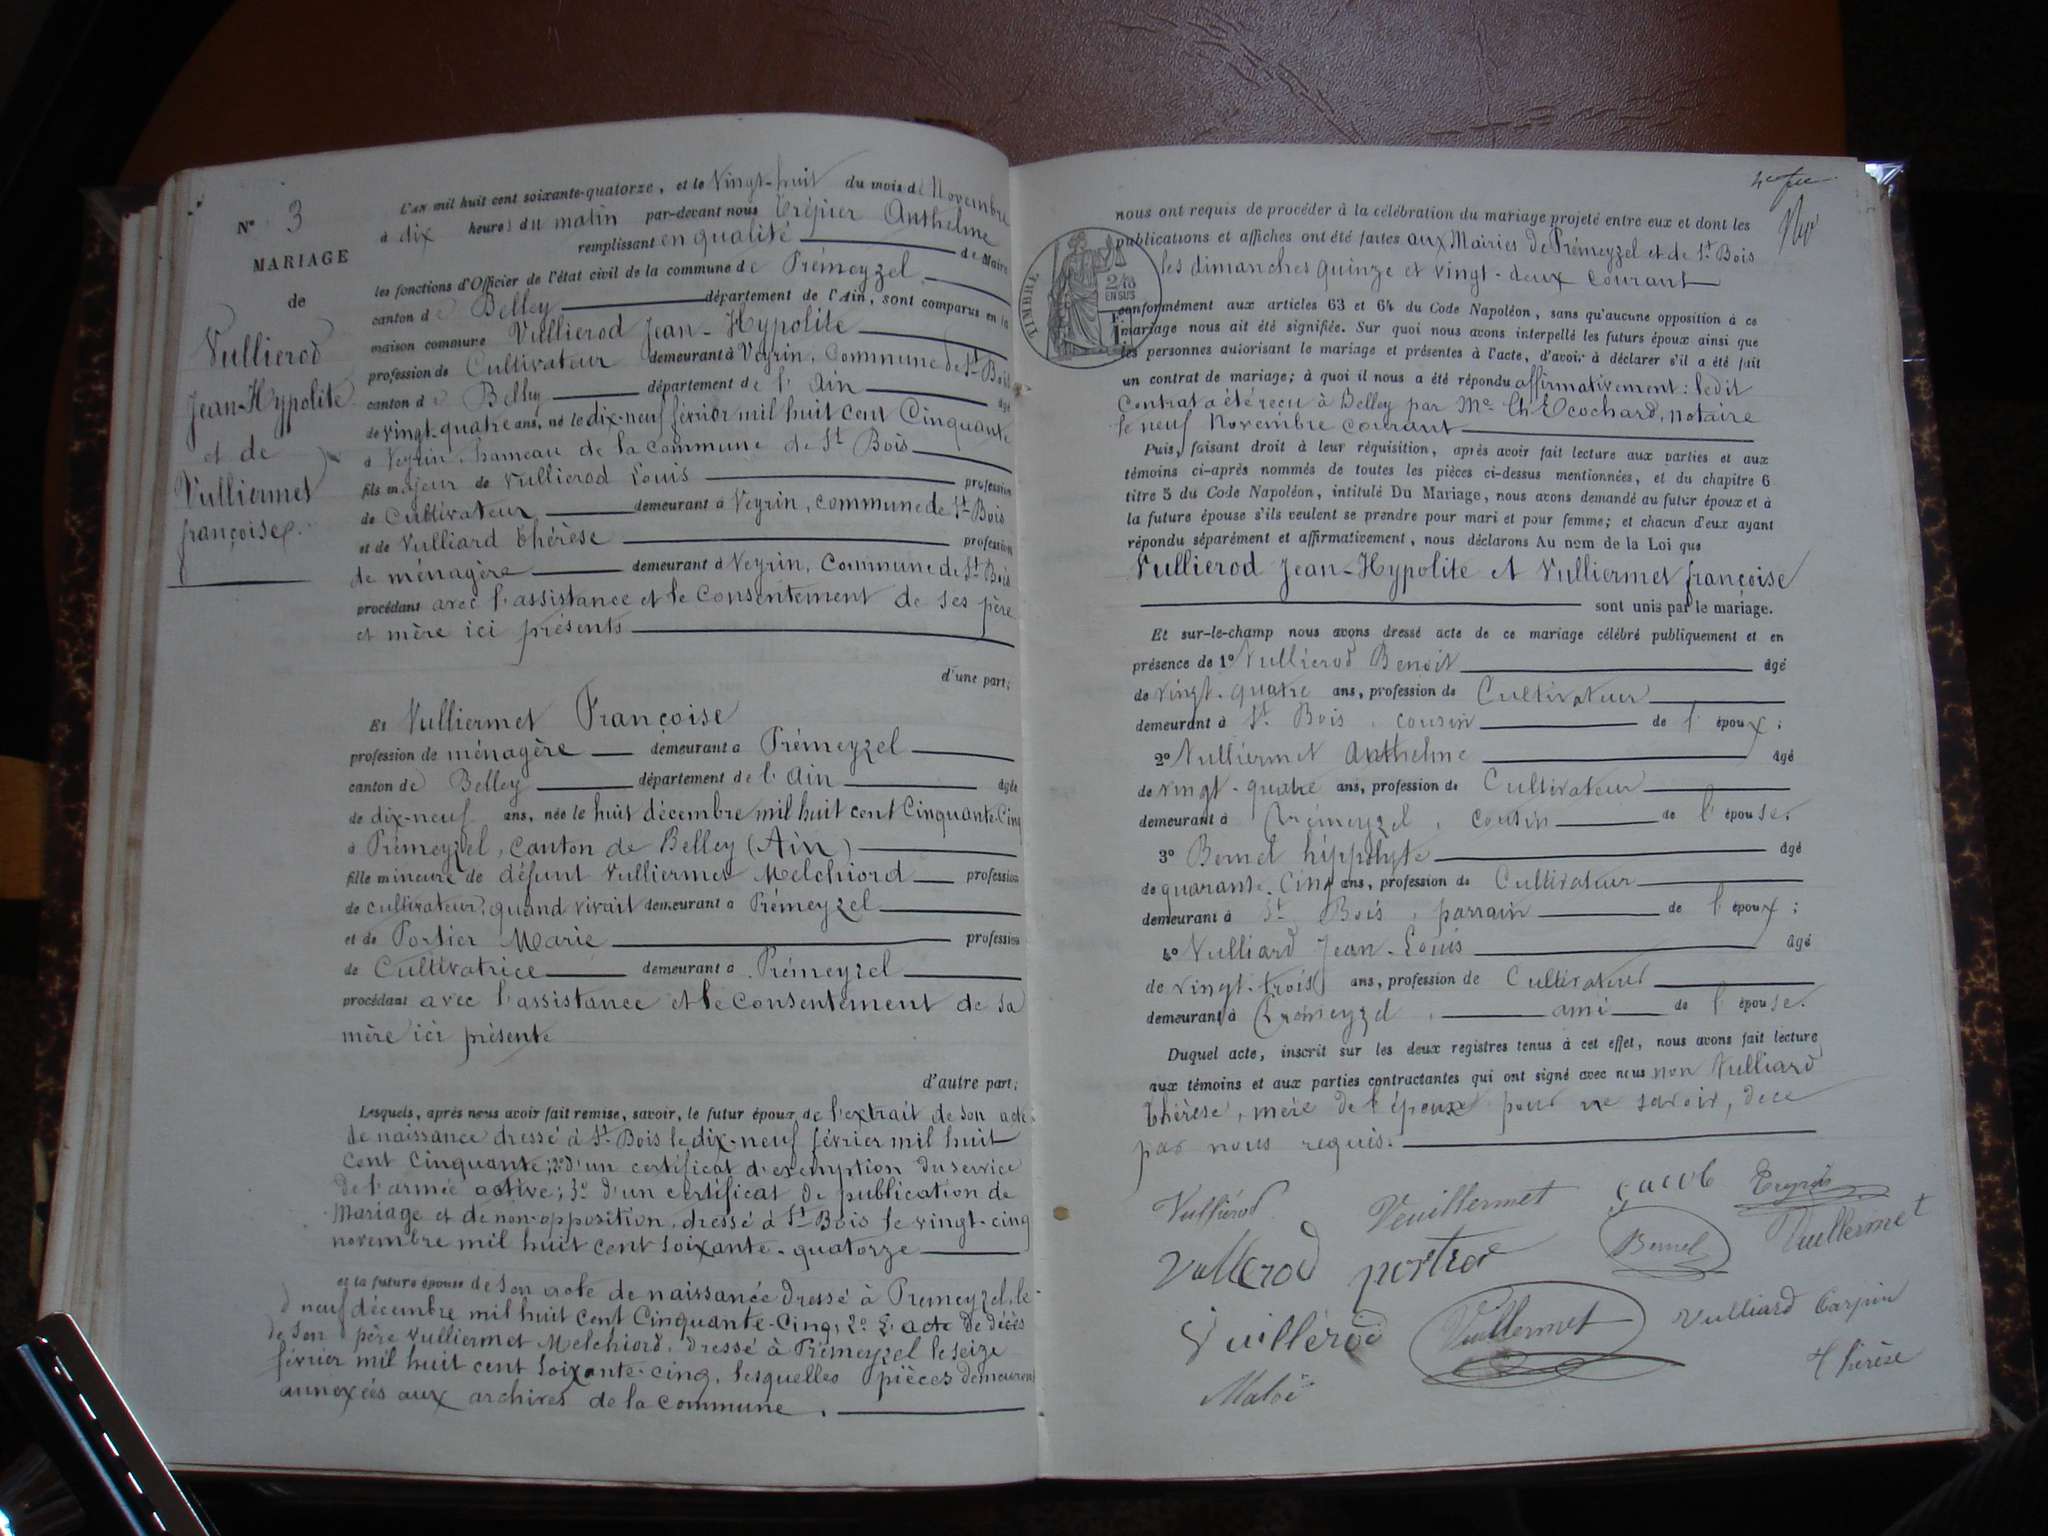 N° 3
MARIAGE
de
Vullierod
Jean-Hypolite
et de
Vulliermet
françoise.
L'an mil huit cent soixante-quatorze, et le vingt-huit du mois de Novembre
à dix heures du matin par-devant nous Trépier Anthelme
remplissant en qualité de Maire
les fonctions d'Officier de l'état civil de la commune de Prémeyzel
canton de Belley département de l'Ain, sont comparus en la
maison commune Vullierod Jean-Hypolite
profession de Cultivateur demeurant à Veyrin, Commune de St Bois
canton de Belley département de l'Ain âgé
de vingt-quatre ans, né le dix-neuf février mil huit cent Cinquante
à Veyrin, hameau de la commune de St Bois
fils majeur de Vullierod Louis profession
de Cultivateur demeurant à Veyrin, commune de St Bois
et de Vulliard thérèse profession
de ménagère demeurant à Veyrin, Commune de St Bois
procédant avec l'assistance et le Consentement de ses père
et mère ici présents
d'une part;
Et Vulliermet Françoise
profession de ménagère demeurant à Prémeyzel
canton de Belley département de l'Ain âgée
de dix-neuf ans, née le huit décembre mil huit cent Cinquante-Cinq
à Prémeyzel, Canton de Belley (Ain)
fille mineure de défunt Vulliermet Melchiord profession
de cultivateur, quand vivait demeurant à Prémeyzel
et de Portier Marie profession
de Cultivatrice demeurant à Prémeyzel
procédant avec l'assistance et le Consentement de sa
mère ici présente
d'autre part;
Lesquels, après nous avoir fait remise, savoir, le futur époux de l'extrait de son acte
de naissance dressé à St Bois le dix-neuf février mil huit
cent Cinquante; 2° d'un certificat d'exemption du service
de l'armée active; 3° d'un certificat de publication de
Mariage et de non-opposition, dressé à St Bois le vingt-cinq
novembre mil huit cent soixante-quatorze
et la future épouse de son acte de naissance dressé à Premeyzel, le
neuf décembre mil huit cent Cinquante-Cinq; 2° L'acte de décès
de son père Vulliermet Melchiord, dressé à Prémeyzel le seize
février mil huit cent soixante-cinq, lesquelles pièces demeurent
annexées aux archives de la Commune.
nous ont requis de procéder à la célébration du mariage projeté entre eux et dont les
publications et affiches ont été faites aux Mairies de Prémeyzel et de St Bois
les dimanches quinze et vingt-deux Courant
TIMBRE
2/10
EN SUS
conformément aux articles 63 et 64 du Code Napoléon, sans qu'aucune opposition à ce
mariage nous ait été signifiée. Sur quoi nous avons interpellé les futurs époux ainsi que
les personnes autorisant le mariage et présentes à l'acte, d'avoir à déclarer s'il a été fait
un contrat de mariage; à quoi il nous a été répondu affirmativement: ledit
Contrat a été reçu à Belley par Me Ch Ecochard, notaire
le neuf Novembre courant
Puis, faisant droit à leur réquisition, après avoir fait lecture aux parties et aux
témoins ci-après nommés de toutes les pièces ci-dessus mentionnées, et du chapitre 6
titre 5 du Code Napoléon, intitulé Du Mariage, nous avons demandé au futur époux et à
la future épouse s'ils veulent se prendre pour mari et pour femme; et chacun d'eux ayant
répondu séparément et affirmativement, nous déclarons Au nom de la Loi que
Vullierod Jean-Hypolite et Vulliermet françoise
sont unis par le mariage.
Et sur-le-champ nous avons dressé acte de ce mariage célébré publiquement et en
présence de 1° Vullierod Benoit âgé
de vingt-quatre ans, profession de Cultivateur
demeurant à St Bois, cousin de l'époux;
2° Vulliermet Anthelme âgé
de vingt-quatre ans, profession de Cultivateur
demeurant à Prémeyzel, cousin de l'épouse.
3° Bernel hippolyte âgé
de quarante-Cinq ans, profession de Cultivateur
demeurant à St Bois, parrain de l'époux;
4° Vulliard Jean-Louis âgé
de vingt-trois ans, profession de Cultivateur
demeurant à Prémeyzel, ami de l'épouse.
Duquel acte, inscrit sur les deux registres tenus à cet effet, nous avons fait lecture
aux témoins et aux parties contractantes qui ont signé avec nous non Vulliard
thérèse, mère de l'époux pour ne savoir, de ce
par nous requis.
Vulliérod Veuillermet Jacob
Vullerod portier Bernel Vuillermet
Vuillérod Vuillermet Vulliard Carpin
thérèse